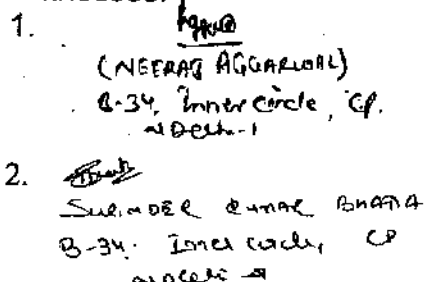 1.
(NEERAJ AGGARWAL)
B-34, Inner Circle, CP.
N Delhi-1
2.
SURINDER KUMAR BHATIA
B-34. Inner circle, CP